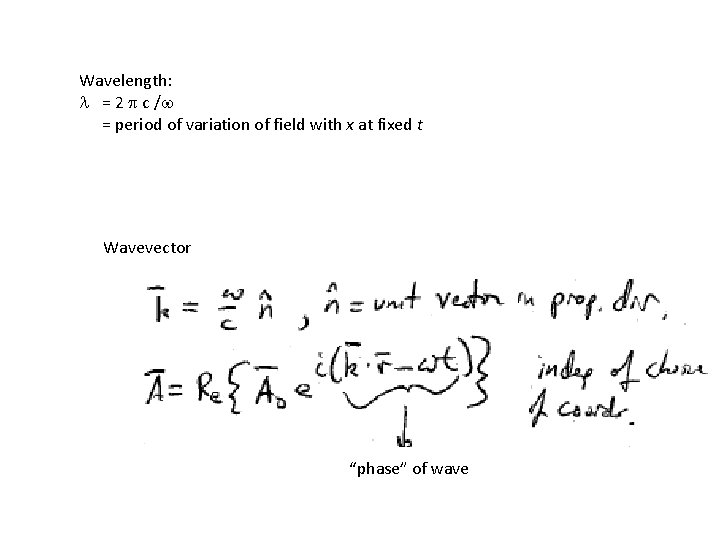 Wavelength:
λ = 2 π c /ω
= period of variation of field with x at fixed t
Wavevector
k̄ = ω/c n̂ , n̂ = unit vector in prop. dir.
Ā = Re{Ā₀ e^{i(k̄·r̄−ωt)}} indep of choice
of coordr.
“phase” of wave